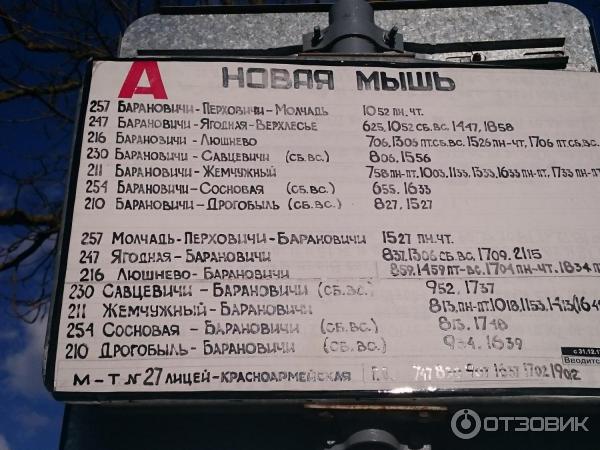 А НОВАЯ МЫШЬ
257 БАРАНОВИЧИ-ПЕРХОВИЧИ-МОЛЧАДЬ 1052 ПН.ЧТ.
247 БАРАНОВИЧИ-ЯГОДНАЯ-ВЕРХЛЕСЬЕ 625,1052 СБ.ВС. 1447,1858
216 БАРАНОВИЧИ-ЛЮШНЕВО 706,1306 ПТ.СБ.ВС, 1526 ПН-ЧТ, 1706 ПТ.СБ.ВС.
230 БАРАНОВИЧИ-САВЦЕВИЧИ (СБ.ВС.) 806,1556
211 БАРАНОВИЧИ-ЖЕМЧУЖНЫЙ 758 ПН-ПТ, 1003,1133,1333,1633 ПН-ПТ, 1733 ПН-ПТ
254 БАРАНОВИЧИ-СОСНОВАЯ (СБ.ВС.) 655,1633
210 БАРАНОВИЧИ-ДРОГОБЫЛЬ (СБ.ВС.) 827,1527
257 МОЛЧАДЬ-ПЕРХОВИЧИ-БАРАНОВИЧИ 1527 ПН.ЧТ.
247 ЯГОДНАЯ-БАРАНОВИЧИ 837,1306 СБ.ВС, 1709,2115
216 ЛЮШНЕВО-БАРАНОВИЧИ 859,1459 ПТ-ВС, 1704 ПН-ЧТ, 1834 П
230 САВЦЕВИЧИ-БАРАНОВИЧИ (СБ.ВС.) 952,1737
211 ЖЕМЧУЖНЫЙ-БАРАНОВИЧИ 813 ПН-ПТ, 1018,1153,1413
254 СОСНОВАЯ-БАРАНОВИЧИ (СБ.ВС.) 813,1748
210 ДРОГОБЫЛЬ-БАРАНОВИЧИ (СБ.ВС.) 1639
с 31.12.1
Вводитс
М-Т №27 ЛИЦЕЙ-КРАСНОАРМЕЙСКАЯ 747 1637 1702 1902
ОТЗОВИК